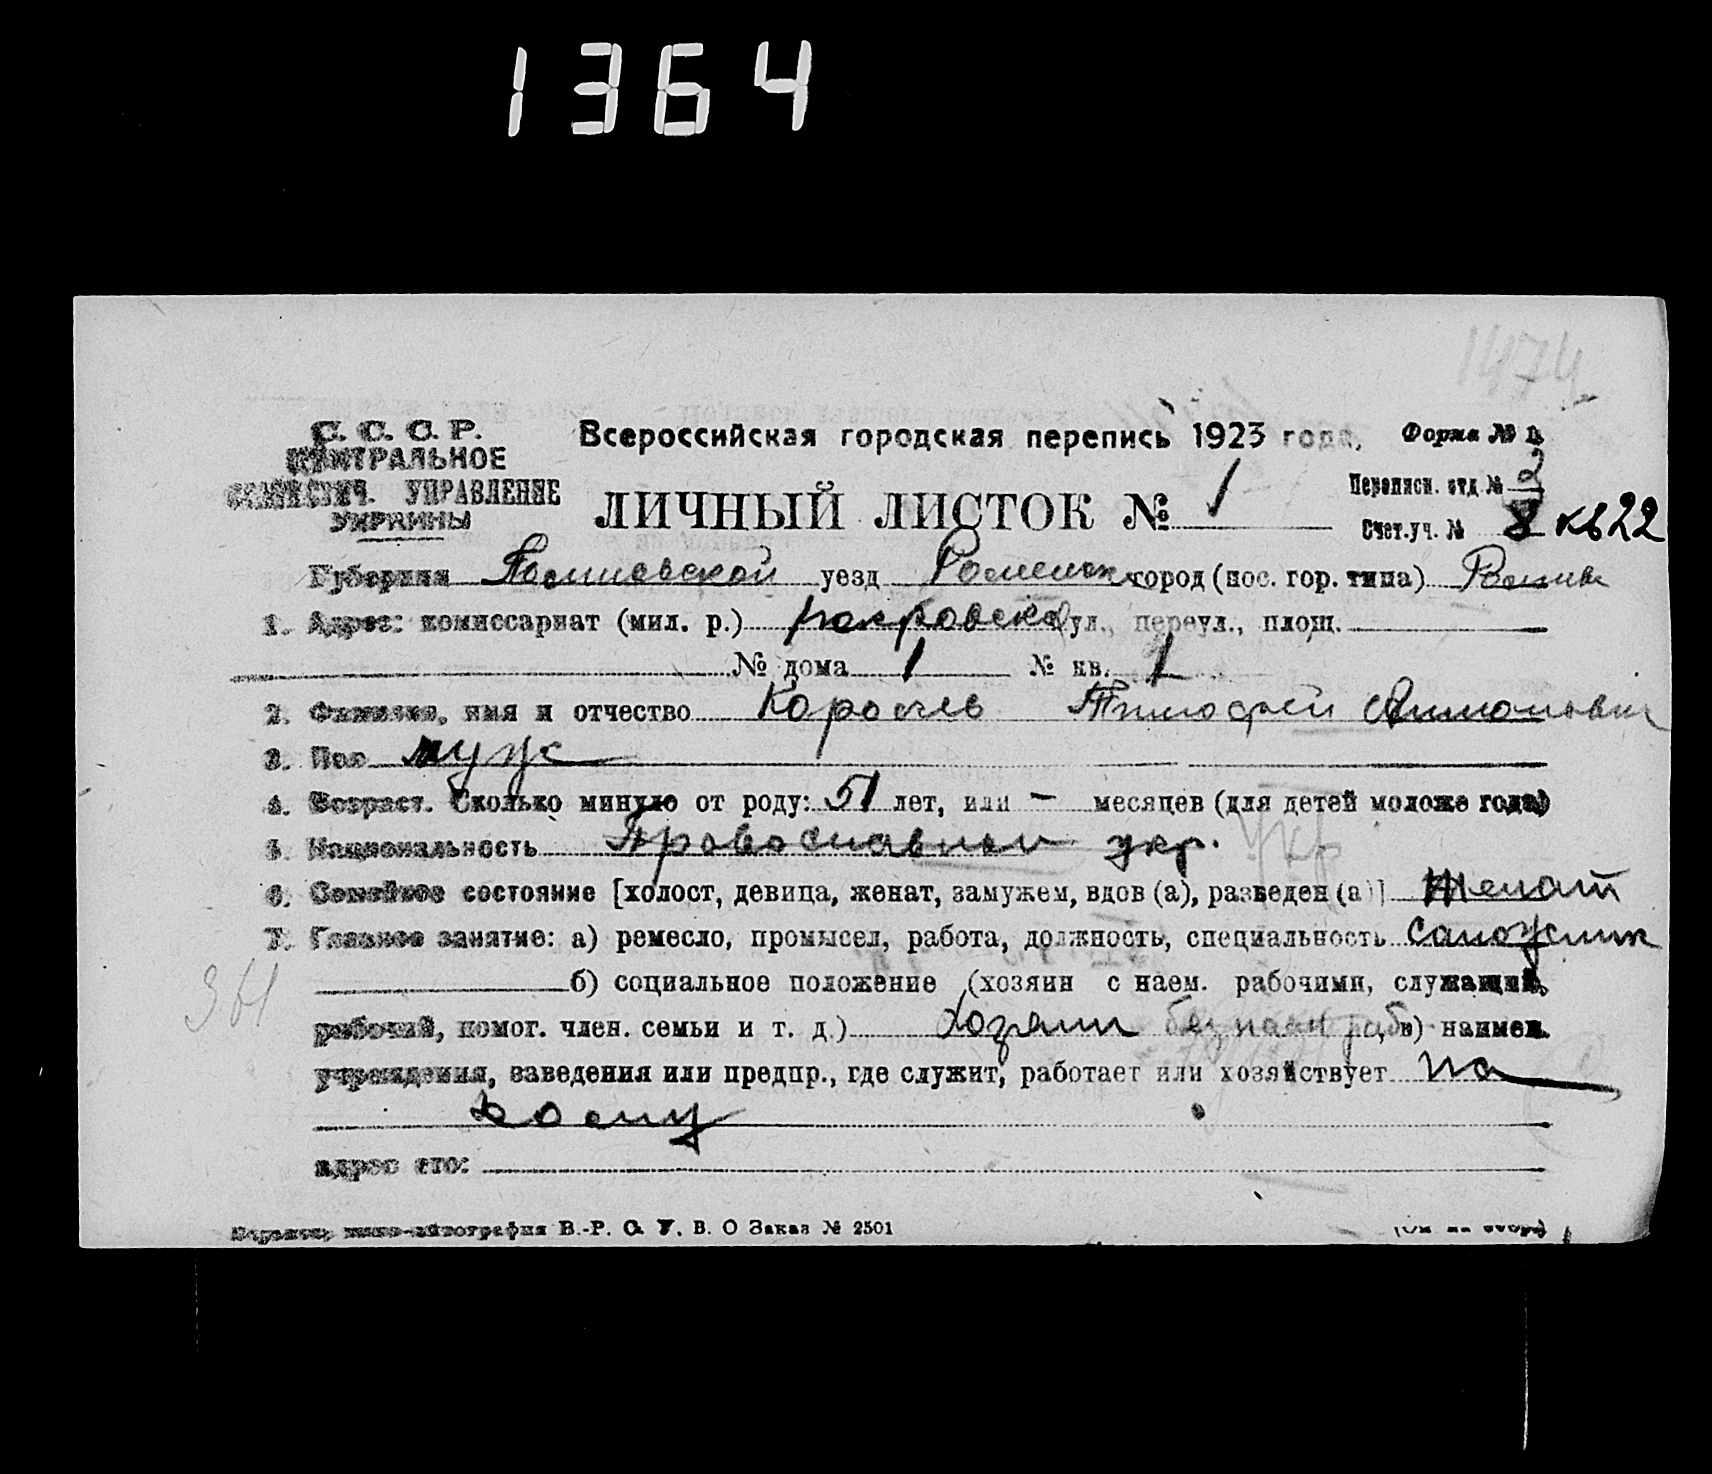 1364
1474
С. С. С. Р. Всероссийская городская перепись 1923 года, Форма № 1.
ЦЕНТРАЛЬНОЕ
СТАТИСТИЧ. УПРАВЛЕНИЕ ЛИЧНЫЙ ЛИСТОК № 1 Переписн. отд № 2
УКРАИНЫ Счет.уч. № 8 кв 22
Губерния уезд город (пос. гор. типа) Ромны
1. Адрес: комиссариат (мил. р.) покровска ул., переул., площ.
№ дома 1 № кв. 1
2. Фамилия, имя и отчество Тимофей
3. Пол муж
4. Возраст. Сколько минуло от роду: 51 лет, или — месяцев (для детей моложе года)
5. Национальность укр. Укр
6. Семейное состояние [холост, девица, женат, замужем, вдов (а), разведен (а)] Женат
7. Главное занятие: а) ремесло, промысел, работа, должность, специальность сапожник
б) социальное положение (хозяин с наем. рабочими, служащий,
рабочий, помог. член. семьи и т. д.) Хозяин без наем раб в) наимен.
учреждения, заведения или предпр., где служит, работает или хозяйствует на
дому
адрес его:
типо-литография В.-Р. С. У. В. О Заказ № 2501 (См на обор.)